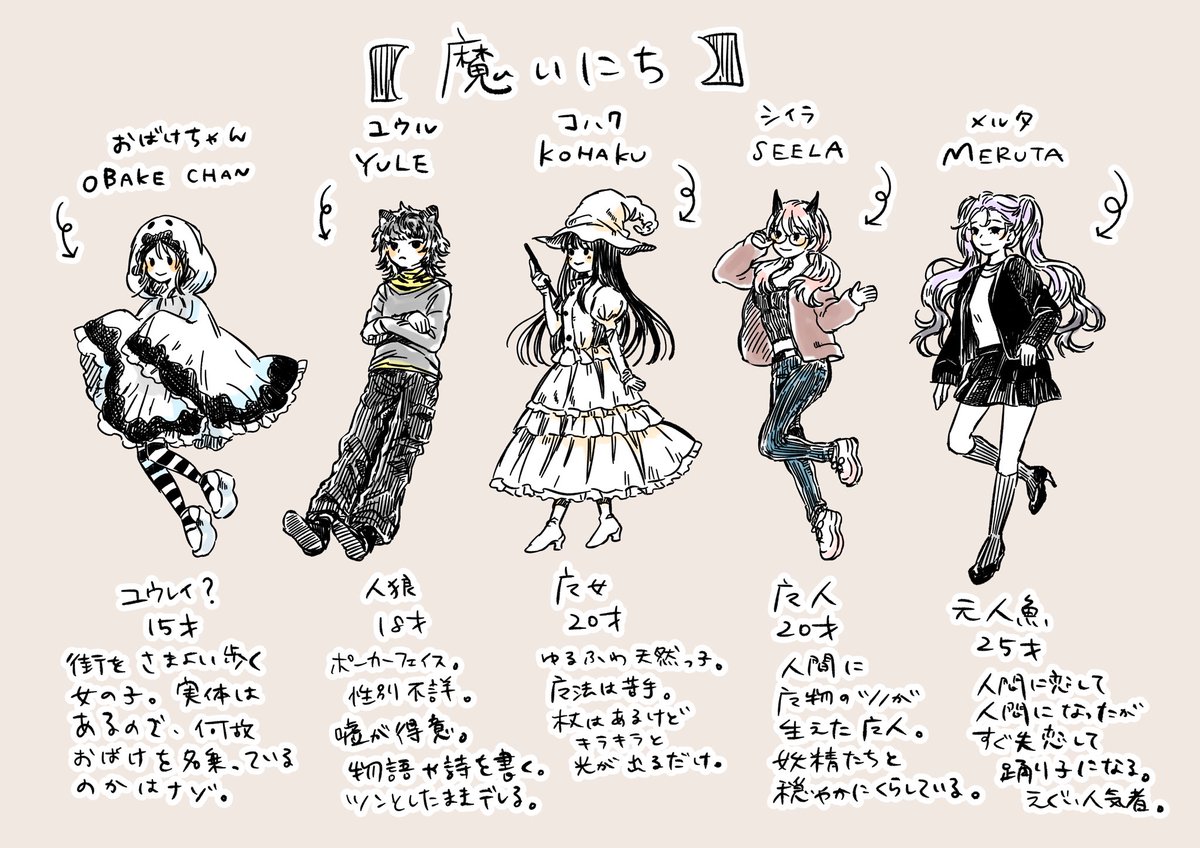 【魔いにち】
おばけちゃん
OBAKE CHAN
ユウル
YULE
コハク
KOHAKU
シイラ
SEELA
メルタ
MERUTA
ユウレイ?
15才
街をさまよい歩く
女の子。実体は
あるので、何故
おばけを名乗っている
のかはナゾ。
人狼
18才
ポーカーフェイス。
性別不詳。
嘘が得意。
物語や詩を書く。
ツンとしたままデレる。
魔女
20才
ゆるふわ天然っ子。
魔法は苦手。
杖はあるけど
キラキラと
光が出るだけ。
魔人
20才
人間に
魔物のツノが
生えた魔人。
妖精たちと
穏やかにくらしている。
元人魚
25才
人間に恋して
人間になったが
すぐ失恋して
踊り子になる。
えぐい人気者。